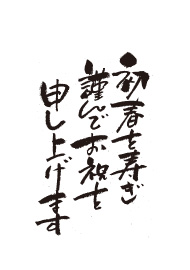 初春を寿ぎ
謹んでお祝を
申し上げます